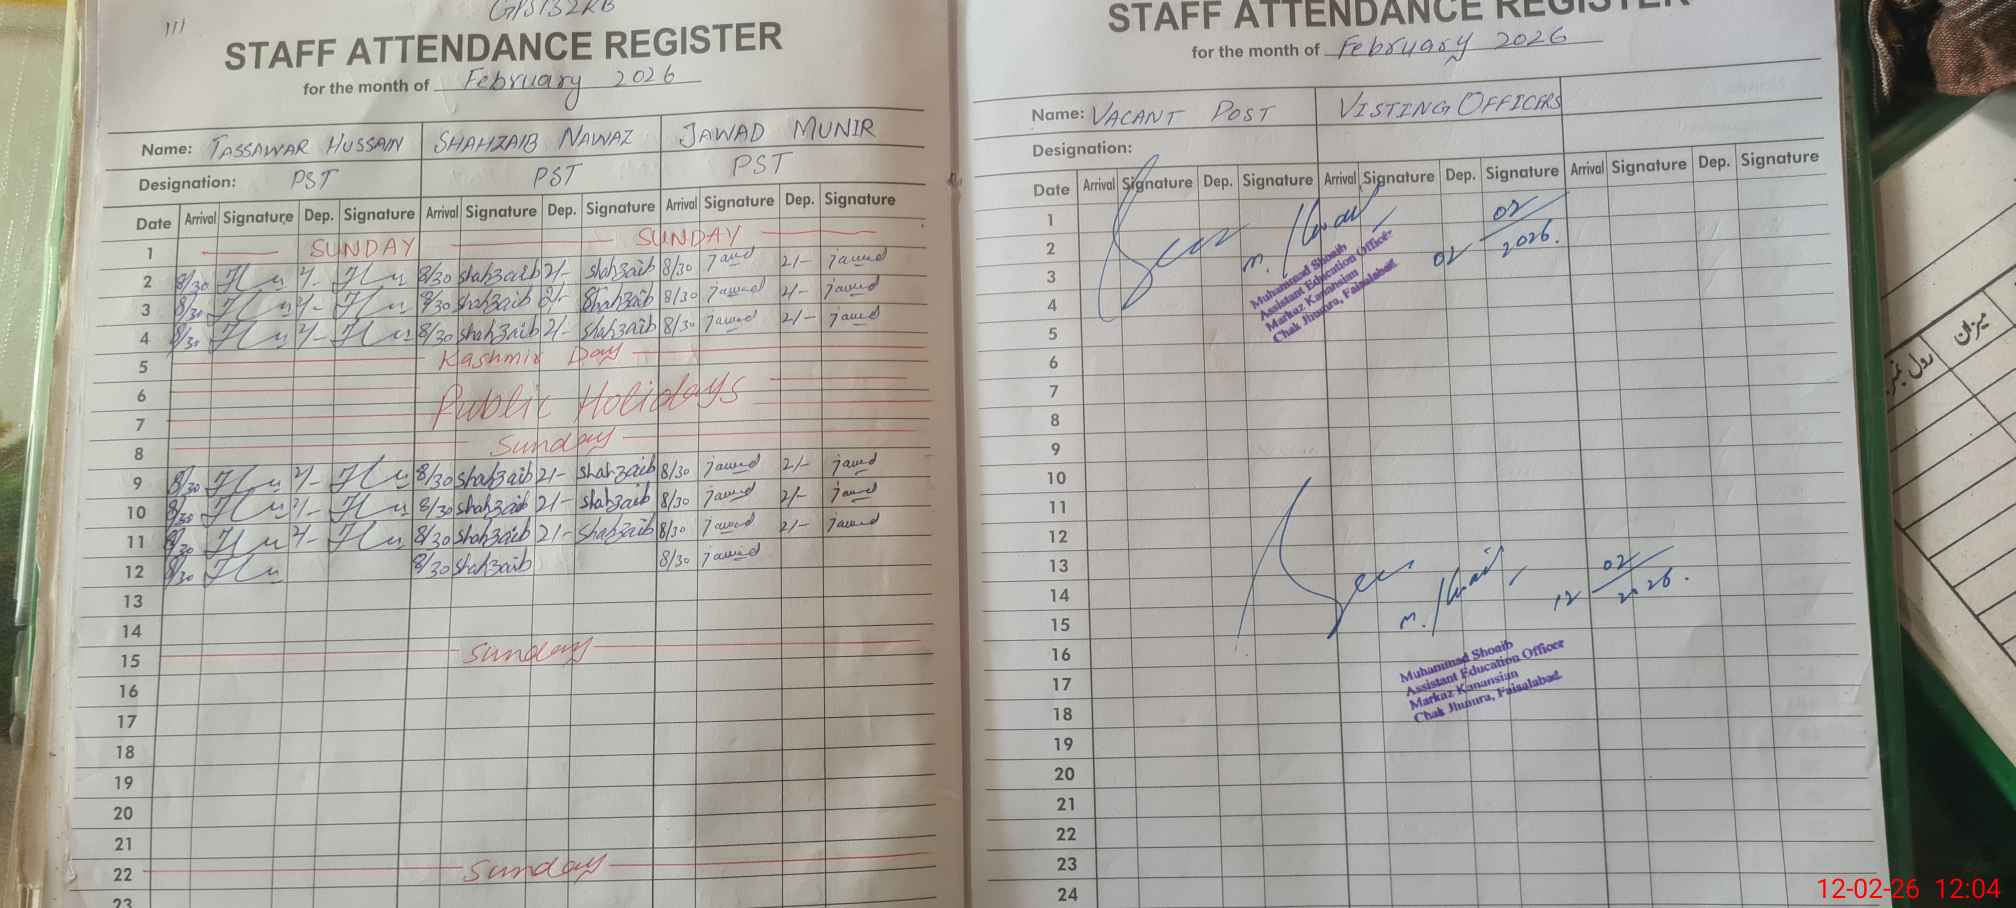 STAFF ATTENDANCE REGISTER
for the month of February 2026
Name: TASSAWAR HUSSAIN SHAHZAIB NAWAZ JAWAD MUNIR
Designation: PST PST PST
Date Arrival Signature Dep. Signature Arrival Signature Dep. Signature Arrival Signature Dep. Signature
1 SUNDAY SUNDAY
2 8/30 2/- 8/30 shahzaib 2/- shahzaib 8/30 jawad 2/- jawad
3 8/30 2/- 8/30 shahzaib 2/- shahzaib 8/30 jawad 2/- jawad
4 8/30 2/- 8/30 shahzaib 2/- shahzaib 8/30 jawad 2/- jawad
5 Kashmir Day
6 Public Holidays
7
8 Sunday
9 8/30 2/- 8/30 shahzaib 2/- shahzaib 8/30 jawad 2/- jawad
10 8/30 2/- 8/30 shahzaib 2/- shahzaib 8/30 jawad 2/- jawad
11 8/30 2/- 8/30 shahzaib 2/- shahzaib 8/30 jawad 2/- jawad
12 8/30 8/30 shahzaib 8/30 jawad
13
14
15 Sunday
16
17
18
19
20
21
22 Sunday
23
STAFF ATTENDANCE REGISTER
for the month of February 2026
Name: VACANT POST VISTING OFFICERS
Designation:
Date Arrival Signature Dep. Signature Arrival Signature Dep. Signature Arrival Signature Dep. Signature
1
2
3
4
5
6
7
8
9
10
11
12
13
14
15
16
17
18
19
20
21
22
23
24
Seen
02 02 2026.
Muhammad Shoaib
Assistant Education Officer
Markaz Kanansian
Chak Jhumra, Faisalabad.
Seen
12 02 2026.
Muhammad Shoaib
Assistant Education Officer
Markaz Kanansian
Chak Jhumra, Faisalabad.
میزان
رول نمبر
12-02-26 12:04